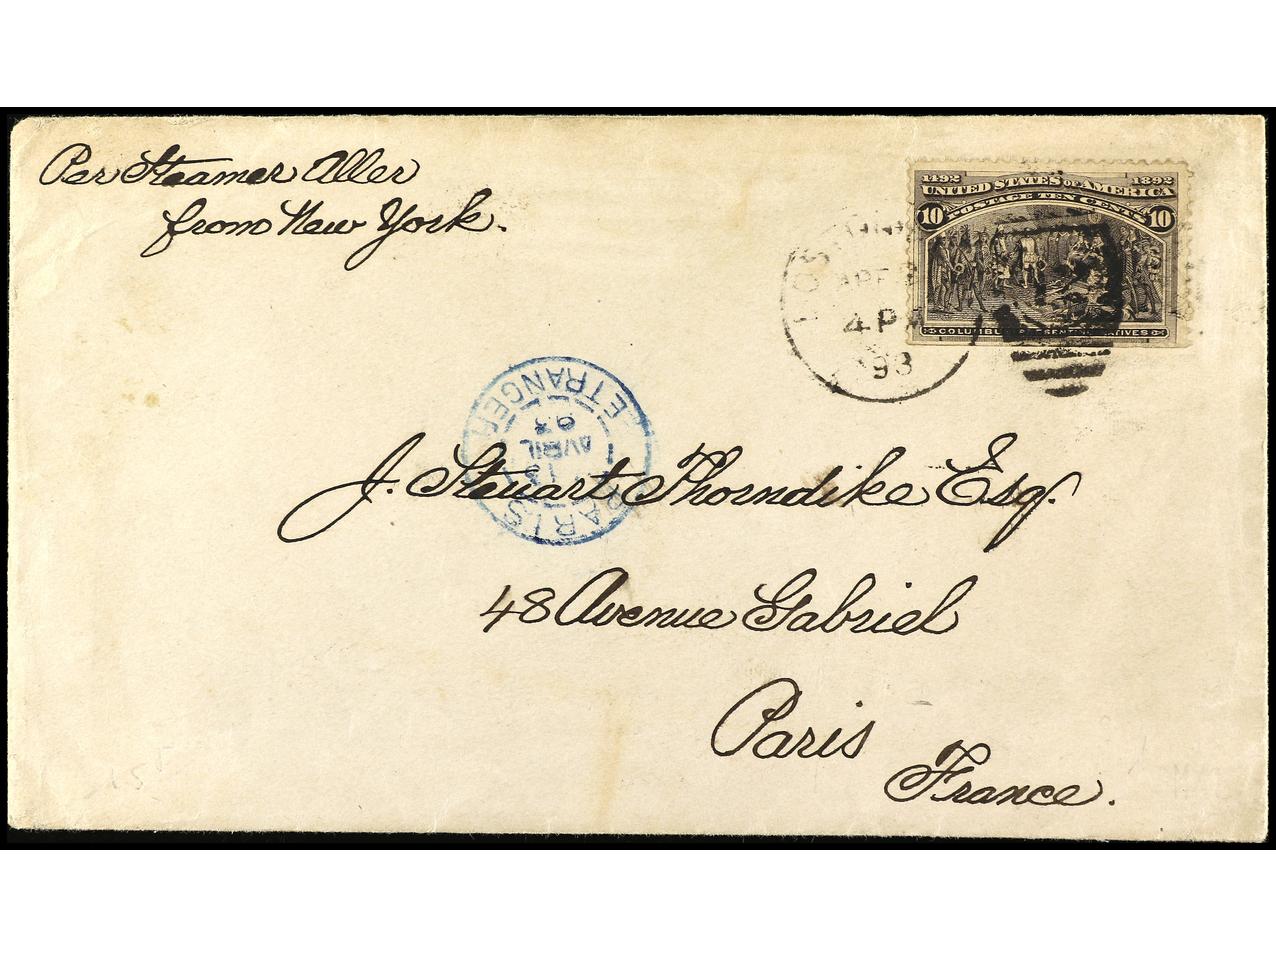 Per Steamer Aller
from New York.
1492 1892
UNITED STATES OF AMERICA
POSTAGE TEN CENTS
10 10
4 PM
93
PARIS ETRANGER
AVRIL
93
J. Steuart Thorndike Esq.
48 Avenue Gabriel
Paris
France.